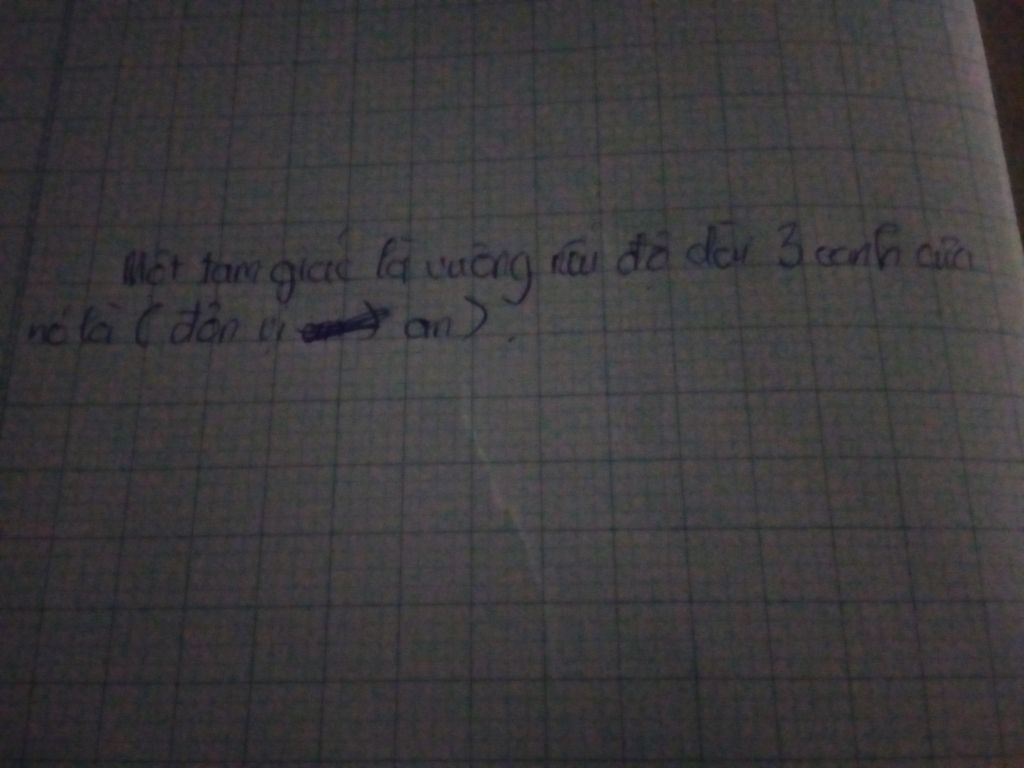 Một tam giác là vuông nếu độ dài 3 cạnh của
nó là (đơn vị cm).